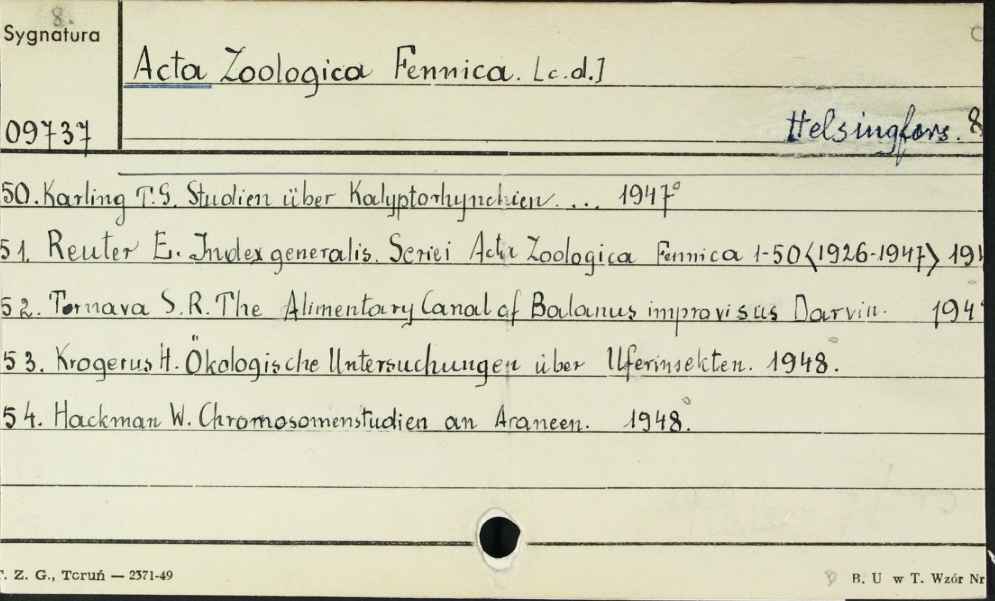 8.
Sygnatura
Acta Zoologica Fennica. [c.d.]
09737
Helsingfors. 8
50. Karling T.G. Studien über Kalyptorhynchien. ... 1947°
51. Reuter E. Index generalis. Seriei Acta Zoologica Fennica 1-50 <1926-1947>
52. Tornava S.R. The Alimentary Canal of Balanus improvisus Darvin.
53. Krogerus H. Ökologische Untersuchungen über Uferinsekten. 1948°.
54. Hackman W. Chromosomenstudien an Araneen. 1948°.
T. Z. G., Toruń — 2371-49
B. U w T. Wzór Nr